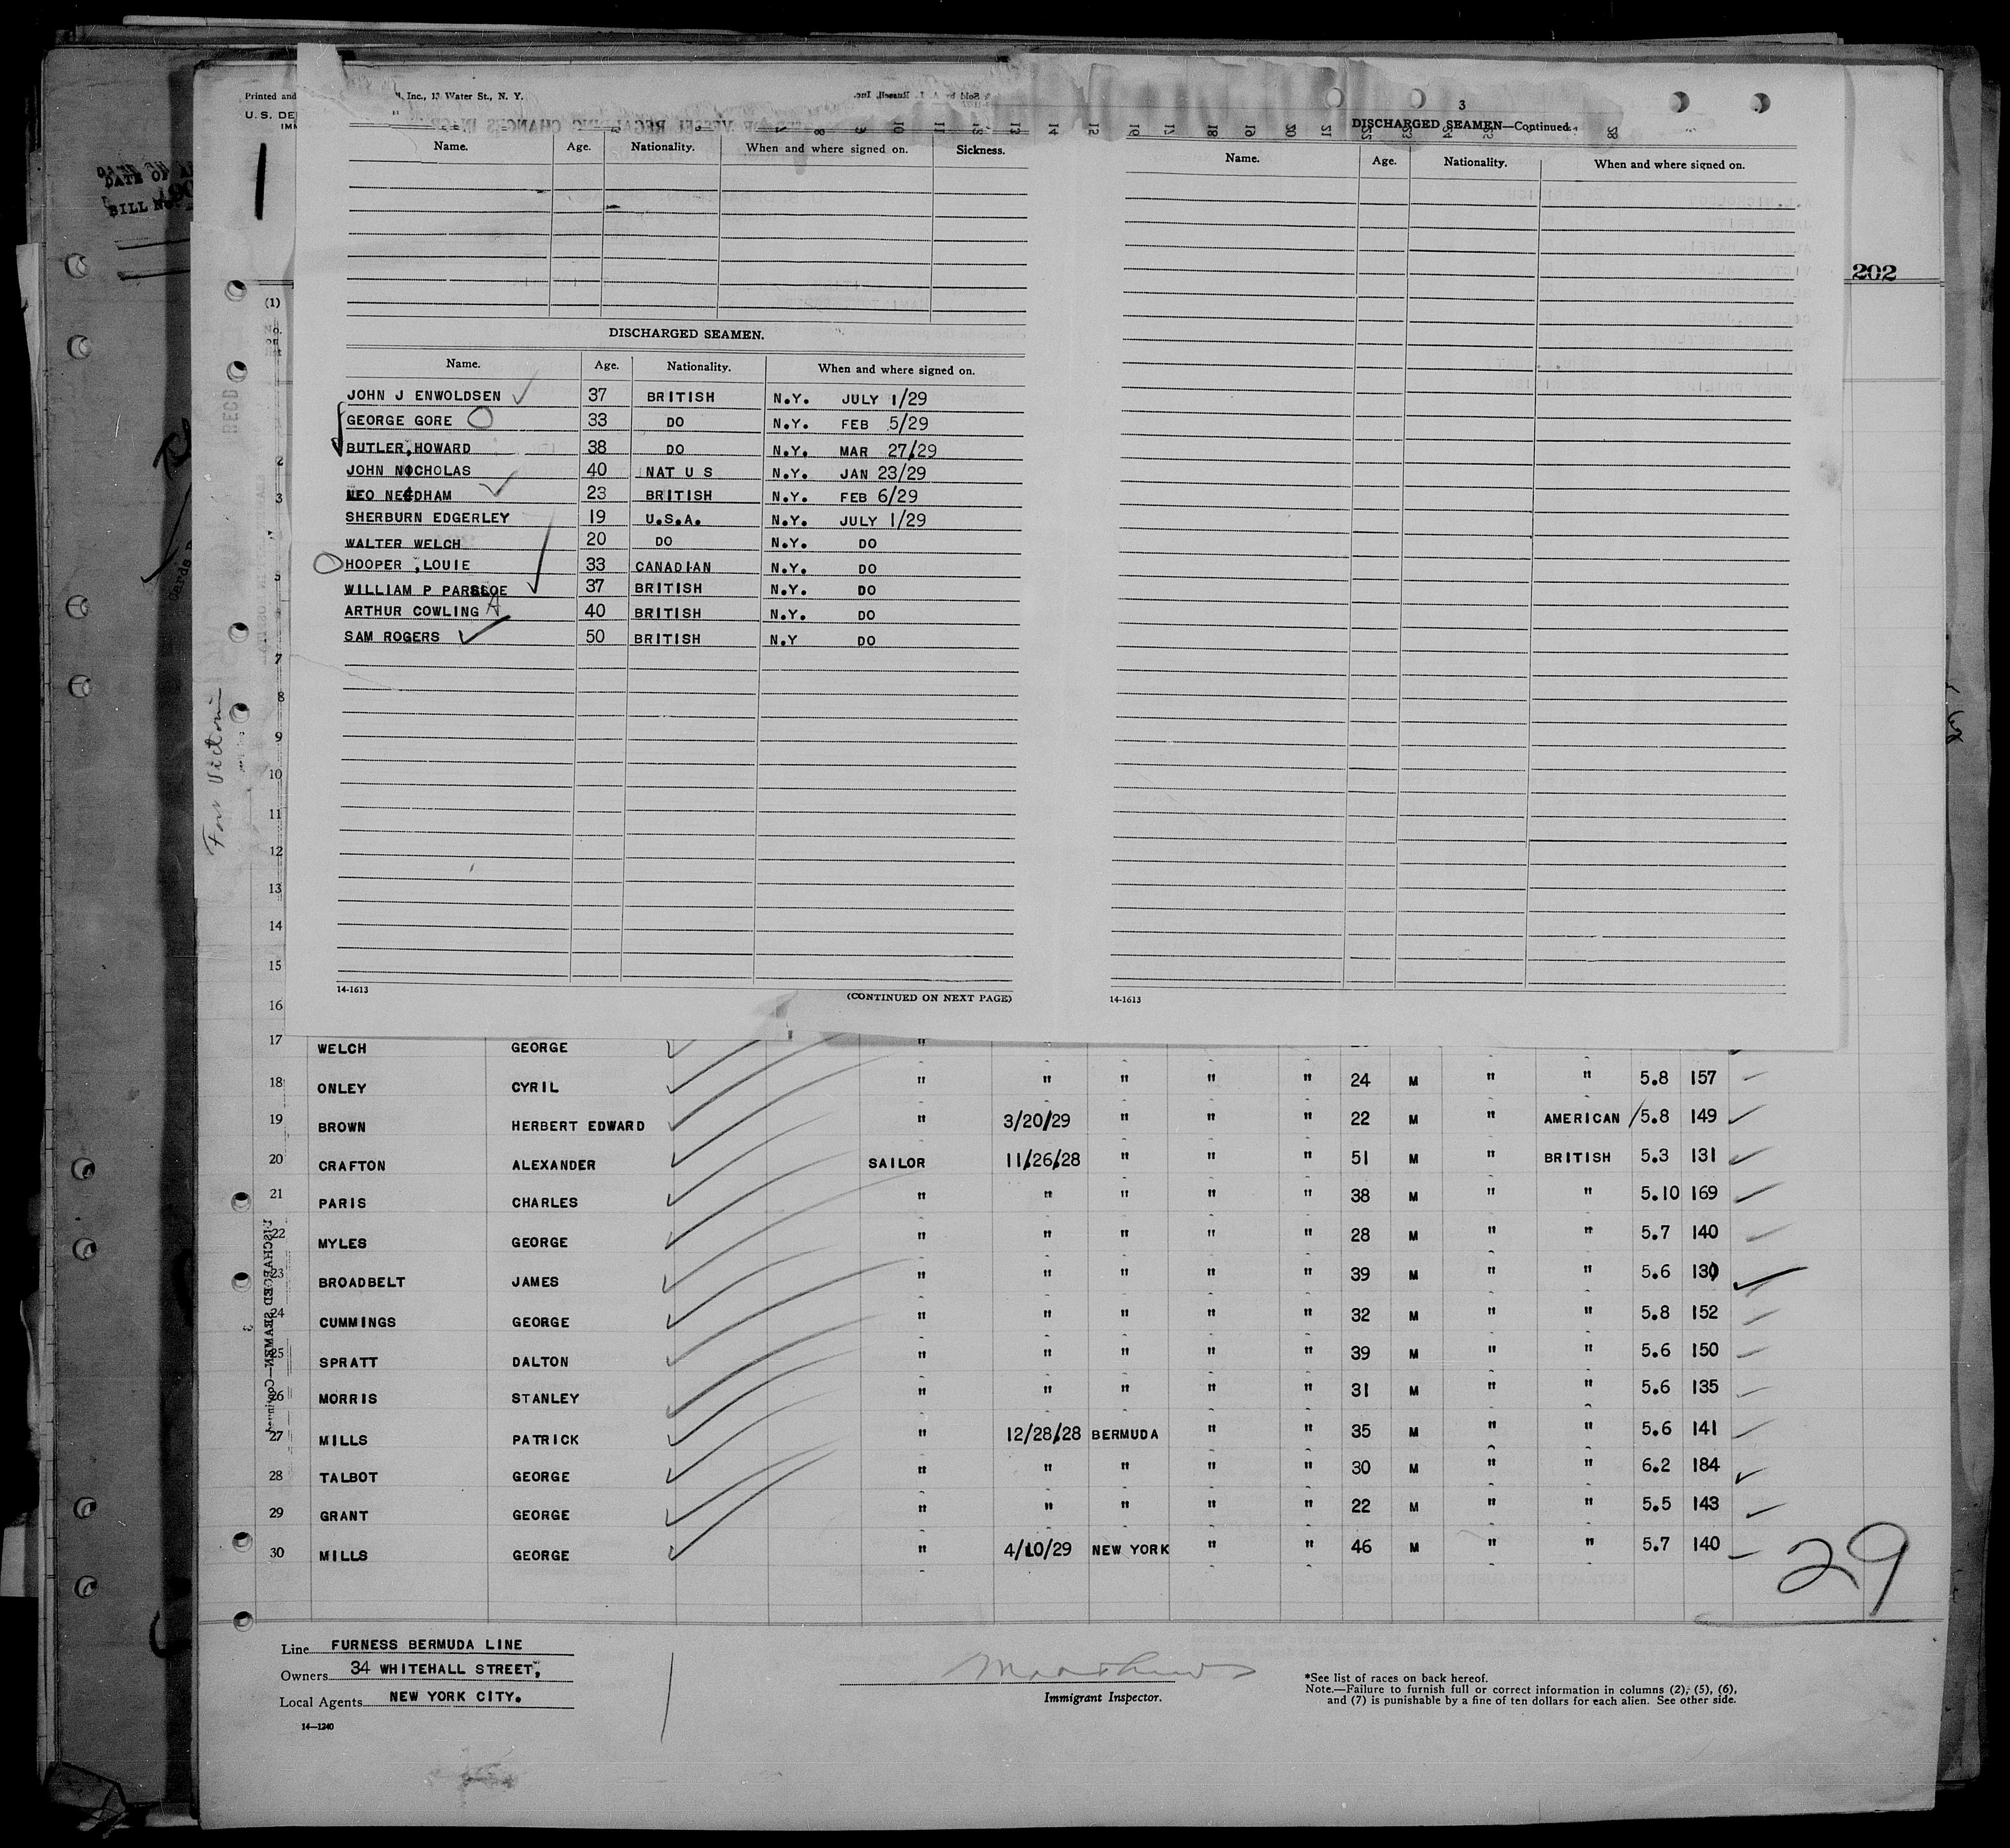 Printed and
, Inc., 13 Water St., N. Y.
U. S. DE
IMM
Name. Age. Nationality. When and where signed on. Sickness.
DISCHARGED SEAMEN.
Name. Age. Nationality. When and where signed on.
JOHN J ENWOLDSEN 37 BRITISH N.Y. JULY 1/29
GEORGE GORE 33 DO N.Y. FEB 5/29
BUTLER, HOWARD 38 DO N.Y. MAR 27/29
JOHN NICHOLAS 40 NAT U S N.Y. JAN 23/29
LEO NEEDHAM 23 BRITISH N.Y. FEB 6/29
SHERBURN EDGERLEY 19 U.S.A. N.Y. JULY 1/29
WALTER WELCH 20 DO N.Y. DO
HOOPER , LOUIE 33 CANADIAN N.Y. DO
WILLIAM P PARSLOE 37 BRITISH N.Y. DO
ARTHUR COWLING A 40 BRITISH N.Y. DO
SAM ROGERS 50 BRITISH N.Y DO
14-1613
(CONTINUED ON NEXT PAGE)
3
DISCHARGED SEAMEN—Continued.
Name. Age. Nationality. When and where signed on.
14-1613
202
DATE OF
BILL No.
(1)
No.
on
list
RECD
Cards
2
3
5
7
8
9
10
11
12
13
14
15
16
17 WELCH GEORGE "
18 ONLEY CYRIL " " " " " 24 M " " 5.8 157
19 BROWN HERBERT EDWARD " 3/20/29 " " " 22 M " AMERICAN 5.8 149
20 CRAFTON ALEXANDER SAILOR 11/26/28 " " " 51 M " BRITISH 5.3 131
21 PARIS CHARLES " " " " " 38 M " " 5.10 169
22 MYLES GEORGE " " " " " 28 M " " 5.7 140
23 BROADBELT JAMES " " " " " 39 M " " 5.6 130
24 CUMMINGS GEORGE " " " " " 32 M " " 5.8 152
25 SPRATT DALTON " " " " " 39 M " " 5.6 150
26 MORRIS STANLEY " " " " " 31 M " " 5.6 135
27 MILLS PATRICK " 12/28/28 BERMUDA " " 35 M " " 5.6 141
28 TALBOT GEORGE " " " " " 30 M " " 6.2 184
29 GRANT GEORGE " " " " " 22 M " " 5.5 143
30 MILLS GEORGE " 4/10/29 NEW YORK " " 46 M " " 5.7 140
29
DISCHARGED SEAMEN—Continued
Line FURNESS BERMUDA LINE
Owners 34 WHITEHALL STREET,
Local Agents NEW YORK CITY.
14—1240
Immigrant Inspector.
*See list of races on back hereof.
Note.—Failure to furnish full or correct information in columns (2), (5), (6),
and (7) is punishable by a fine of ten dollars for each alien. See other side.